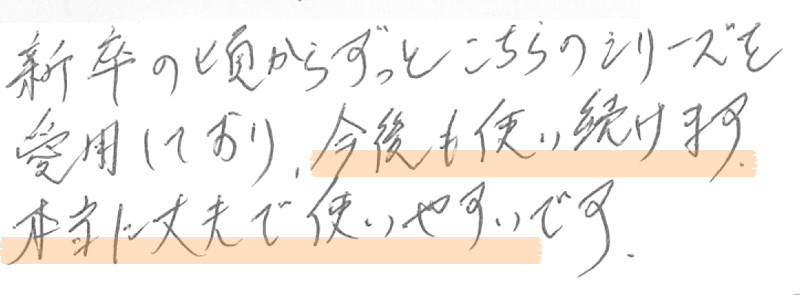 新卒の頃からずっとこちらのシリーズを
愛用しており、今後も使い続けます。
本当に丈夫で使いやすいです。